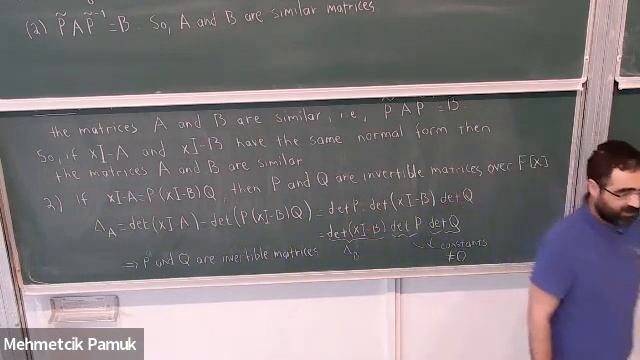 (2) P̃ A P̃⁻¹ = B. So, A and B are similar matrices
the matrices A and B are similar, i.e., P̃ A P̃⁻¹ = B.
So, if xI-A and xI-B have the same normal form then
the matrices A and B are similar
2) if xI-A=P(xI-B)Q, then P and Q are invertible matrices over F[x]
Δ_A = det(xI-A) = det(P(xI-B)Q) = det P. det(xI-B) det Q
= det(xI-B) det P det Q
Δ_B constants
≠0
⇒ P and Q are invertible matrices
Mehmetcik Pamuk